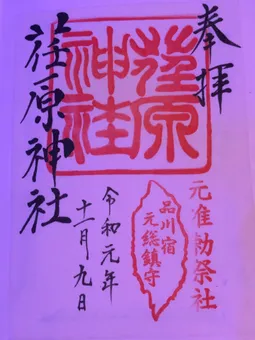 奉拝
元准勅祭社
品川宿
元総鎮守
荏原
神社
令和元年
十一月九日
荏原神社